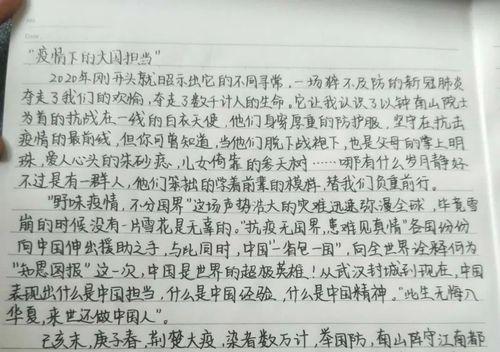 "疫情下的大国担当"
2020年刚开头就昭示出它的不同寻常，一场猝不及防的新冠肺炎
夺走了我们的欢愉，夺走了数千计人的生命。它让我认识了以钟南山院士
为首的抗战在一线的白衣天使，他们身穿厚重的防护服，坚守在抗击
疫情的最前线，但你可曾知道，当他们脱下战袍下，也是父母的掌上明
珠，爱人心头的朱砂痣，儿女倚靠的参天树……哪有什么岁月静好
不过是有一群人，他们笨拙的学着前辈的模样，替我们负重前行。
"野味疫情，不分国界"这场声势浩大的灾难迅速弥漫全球，毕竟雪
崩的时候没有一片雪花是无辜的。"抗疫无国界，患难见真情"各国纷纷
向中国伸出援助之手，与此同时，中国"一省包一国"，向全世界诠释何为
"知恩图报"这一次，中国是世界的超级英雄！从武汉封城到现在，中国
表现出什么是中国担当，什么是中国经验，什么是中国精神。"此生无悔入
华夏，来世还做中国人"。
己亥末，庚子春，荆楚大疫，染者数万计，举国防，南山阵守江南都